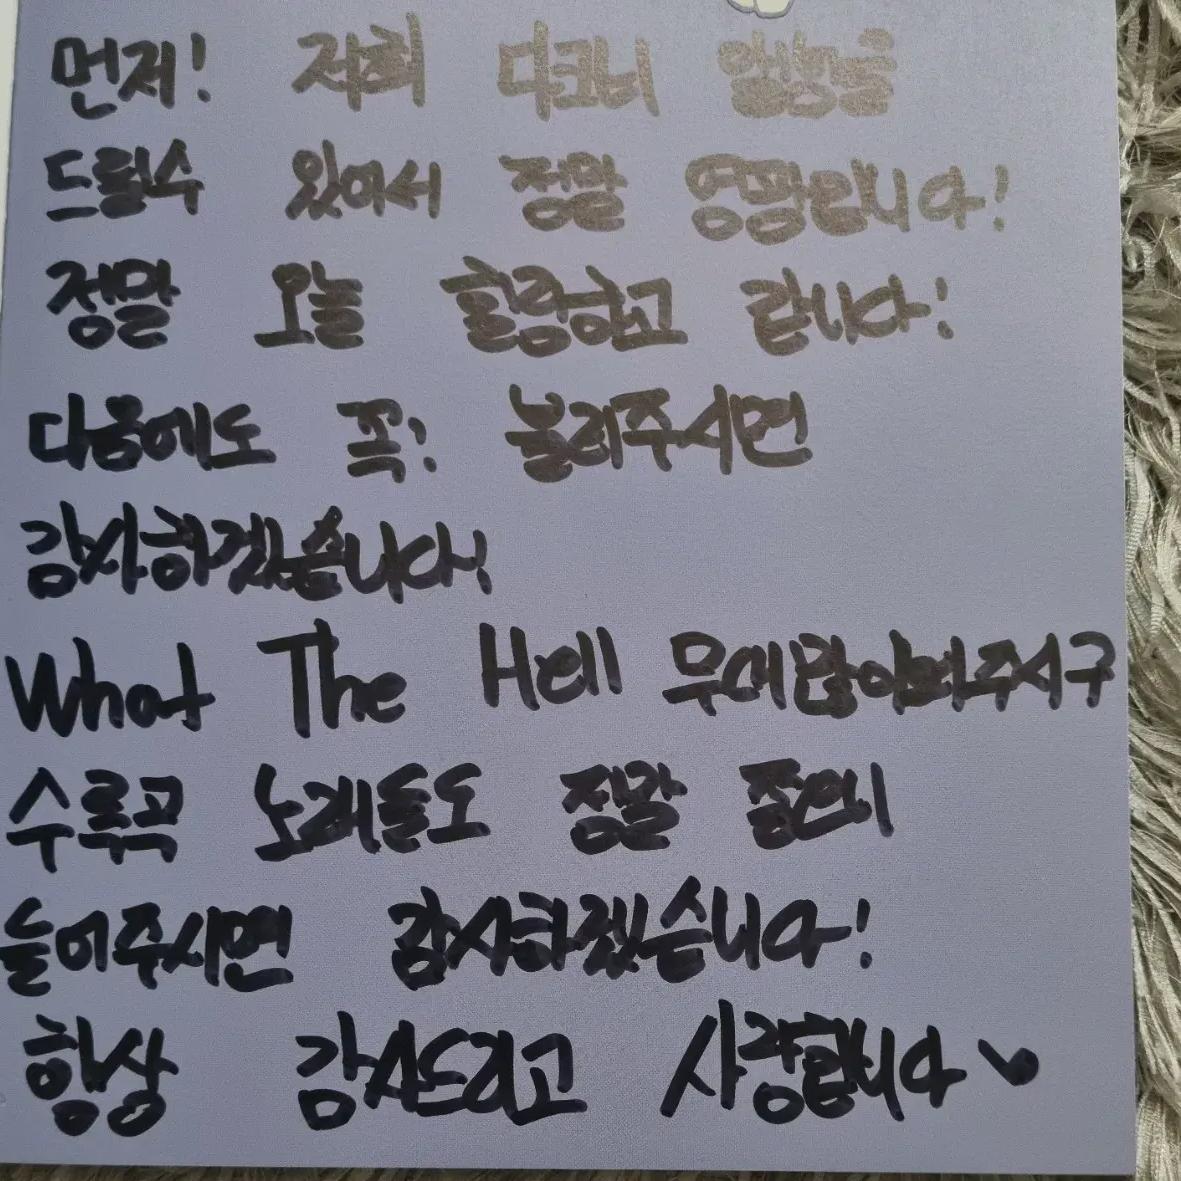 먼저! 저희 다크비 앨범을
드릴수 있어서 정말 영광입니다!
정말 오늘 힐링하고 갑니다!
다음에도 꼭! 불러주시면
감사하겠습니다!
What The Hell 무대많이봐주시구
수록곡 노래들도 정말 많이
들어주시면 감사하겠습니다!
항상 감사드리고 사랑합니다